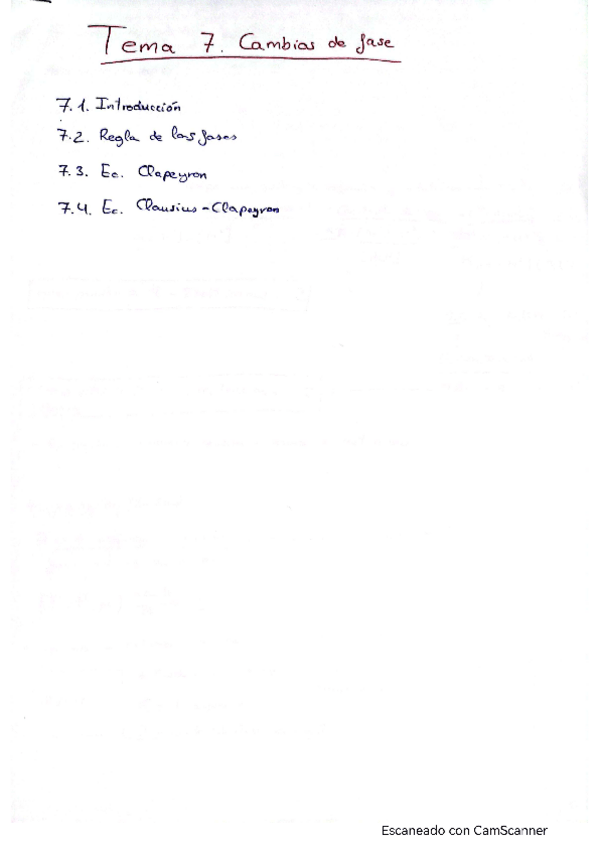 Tema 7. Cambios de fase
7.1. Introducción
7.2. Regla de las fases
7.3. Ec. Clapeyron
7.4. Ec. Clausius-Clapeyron
Escaneado con CamScanner